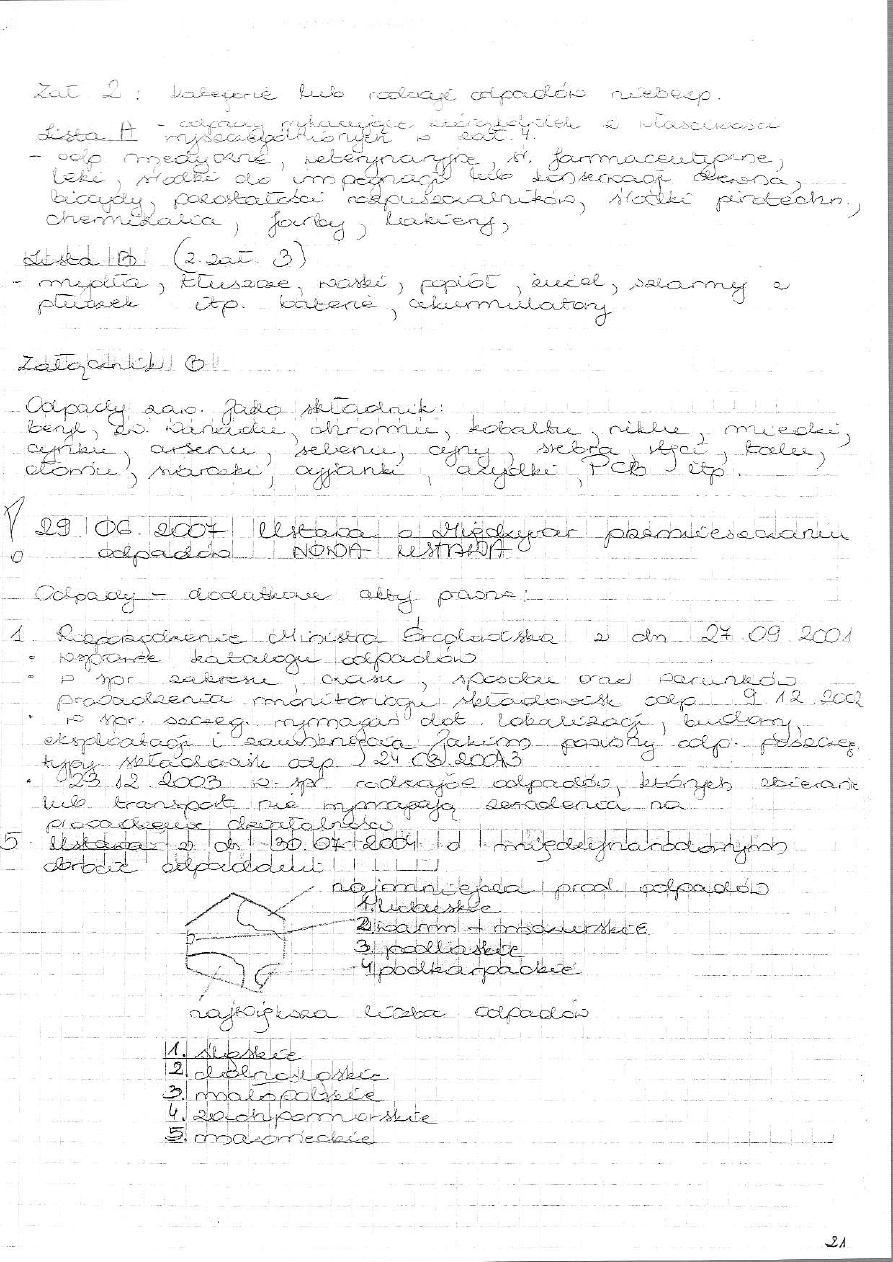 Zał 2 : kategorie lub rodzaje odpadów niebezp.
- odpady wykazujące z właściwości
Lista A wyszczególnionych w zał. 4.
- odp medyczne, weterynaryjne, śr. farmaceutyczne,
leki, środki do impregnacji lub konserwacji drewna,
biocydy, pozostałości rozpuszczalników, środki pirotechn.,
chemikalia, farby, lakiery,
Lista B (z. zał. 3)
- mydła, tłuszcze, woski, popiół, żużel, szlamy z
płuczek itp. baterie, akumulatory
Załącznik B
Odpady zaw. jako składnik:
beryl, zw. wanadu, chromu, kobaltu, niklu, miedzi,
cynku, arsenu, selenu, cyny, srebra, rtęci, talu,
ołowiu, cyjanki, azydki, PCB itp.
29 06 2007 Ustawa o Międzynar przemieszczaniu
odpadów NOWA USTAWA
Odpady - dodatkowe akty prawne:
1 Rozporządzenie Ministra Środowiska z dn 27.09.2001
• w sprawie katalogu odpadów
• w spr. zakresu, czasu, sposobu oraz warunków
prowadzenia monitoringu składowisk odp 9 12 2002
• w spr. szczeg. wymagań dot. lokalizacji, budowy,
eksploatacji i zamknięcia jakim powinny odp. poszczeg
typy składowisk odp. 24 03 2003
• 23 12 2003 w spr rodzajów odpadów, których zbieranie
lub transport nie wymagają zezwolenia na
prowadzenie działalności
5 Ustawa z dn 30.07.2004 o międzynarodowym
obrocie odpadami
najmniejsza prod odpadów
1. lubuskie
2 warm + mazurskie
3 podlaskie
4 podkarpackie
największa liczba odpadów
1. śląskie
2 dolnośląskie
3 małopolskie
4. zachpomorskie
5. mazowieckie
21